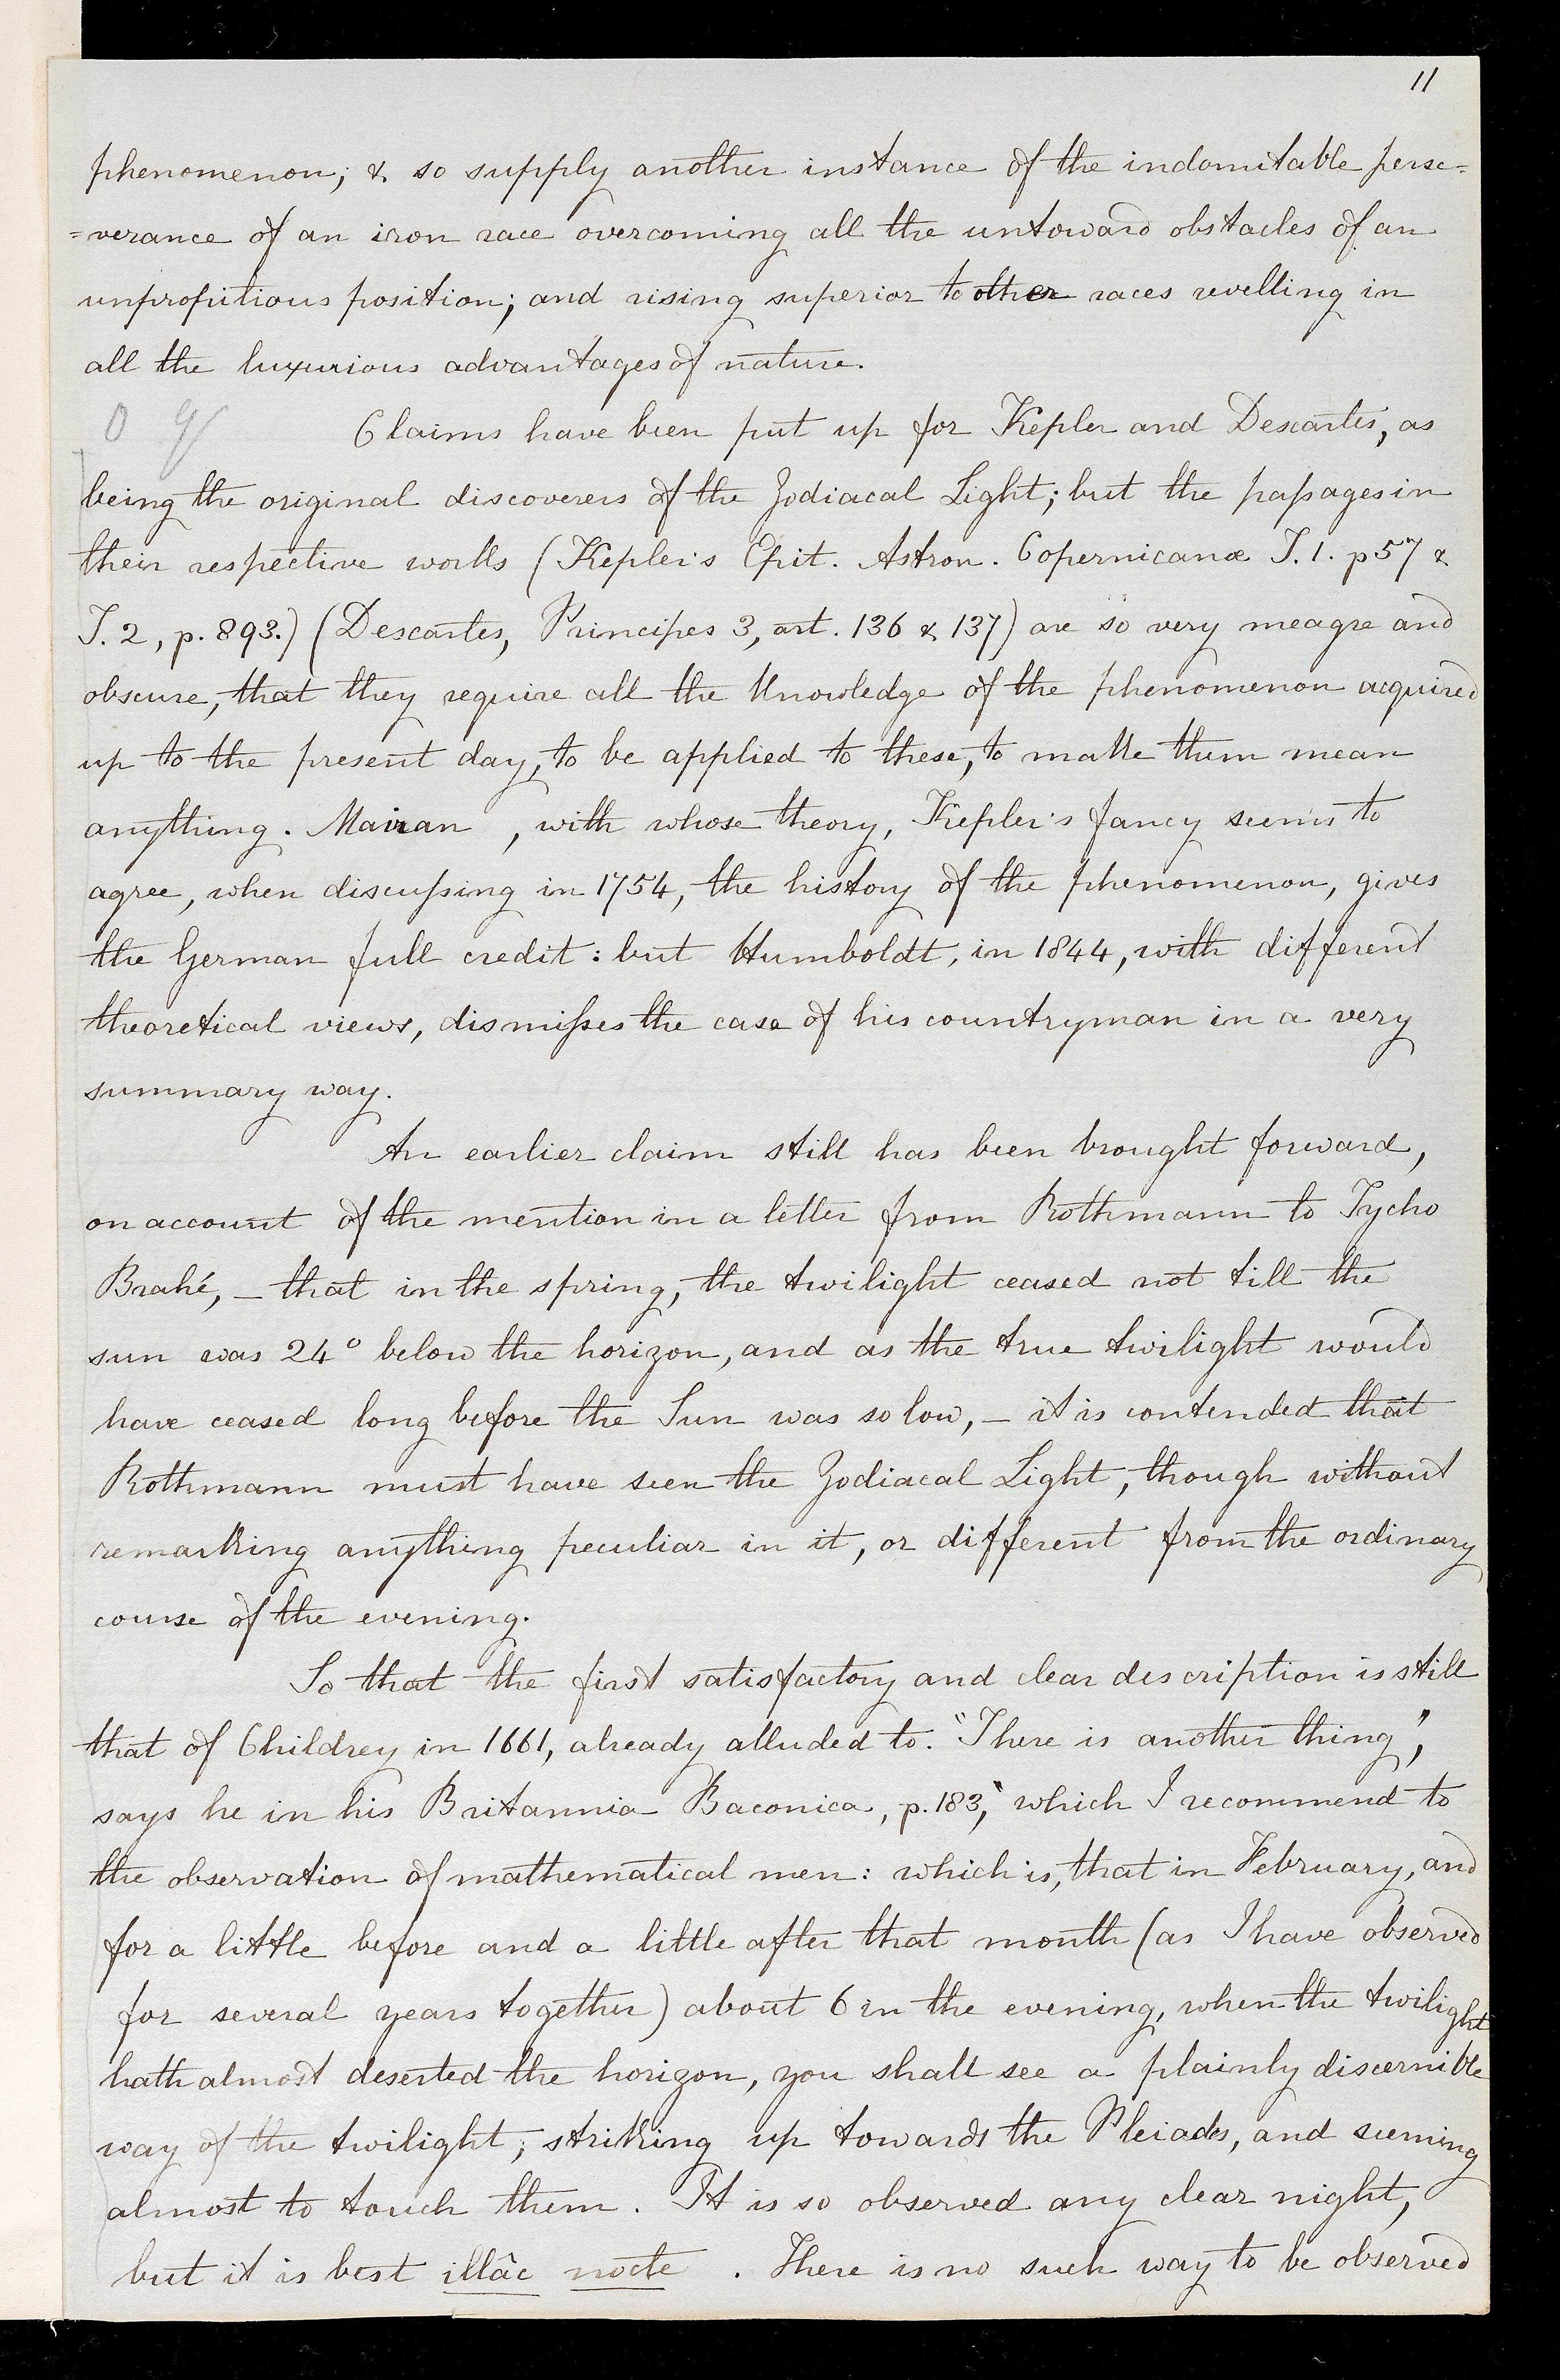 11
phenomenon; & so supply another instance of the indomitable perse=
=verance of an iron race overcoming all the untoward obstacles of an
unpropitious position; and rising superior to other races revelling in
all the luxurious advantages of nature.
Claims have been put up for Kepler and Descartes, as
being the original discoverers of the Zodiacal Light; but the passages in
their respective works (Kepler's Epit. Astron. Copernicanæ T. 1. p 57 &
T. 2, p. 893.) (Descartes, Principes 3, art. 136 & 137) are so very meagre and
obscure, that they require all the knowledge of the phenomenon acquired
up to the present day, to be applied to these, to make them mean
anything. Mairan , with whose theory, Kepler's fancy seems to
agree, when discussing in 1754, the history of the phenomenon, gives
the German full credit: but Humboldt, in 1844, with different
theoretical views, dismisses the case of his countryman in a very
summary way.
An earlier claim still has been brought forward,
on account of the mention in a letter from Rothmann to Tycho
Brahé, – that in the spring, the twilight ceased not till the
sun was 24° below the horizon, and as the true twilight would
have ceased long before the Sun was so low, – it is contended that
Rothmann must have seen the Zodiacal Light, though without
remarking anything peculiar in it, or different from the ordinary
course of the evening.
So that the first satisfactory and clear description is still
that of Childrey in 1661, already alluded to. "There is another thing",
says he in his Britannia Baconica, p. 183, "which I recommend to
the observation of mathematical men: which is, that in February, and
for a little before and a little after that month (as I have observed
for several years together) about 6 in the evening, when the twilight
hath almost deserted the horizon, you shall see a plainly discernible
way of the twilight, striking up towards the Pleiades, and seeming
almost to touch them. It is so observed any clear night,
but it is best illâc nocte . There is no such way to be observed